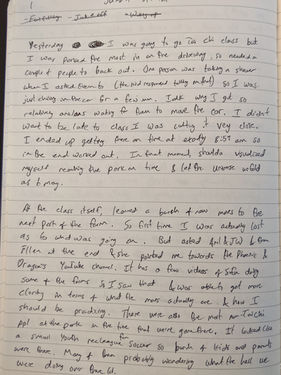 Yesterday I was going to go Tai chi class but
I was parked the most in on the driveway, so needed a
couple of people to back out. One person was taking a shower
when I asked them to (they did respond fully on but) so I was
just chilling on the car for a few min. Idk why I got so
relatively anxious waiting for them to move the car. I didn't
want to be late to class & I was cutting it very close.
I ended up getting there on time at exactly 8:59 am so
in the end worked out. In that moment, shoulda visualized
myself reaching the park on time & let the universe unfold
as it may.
At the class itself, learned a bunch of new moves to the
next part of the form. So first time I was actually lost
as to what was going on. But asked & from
Ellen at the end & she pointed me towards the Phoenix &
Dragons YouTube channel. It has a few videos of Sifu doing
some of the forms & I saw that & was able to get more
clarity in terms of what the moves actually are & how I
should be practicing. There were also the most non-Tai Chi
ppl at the park in the time that we've gone there. It looked like
a small youth rec league for soccer so bunch of kids and parents
were there. Many of them probably wondering what the hell we
were doing over there lol.